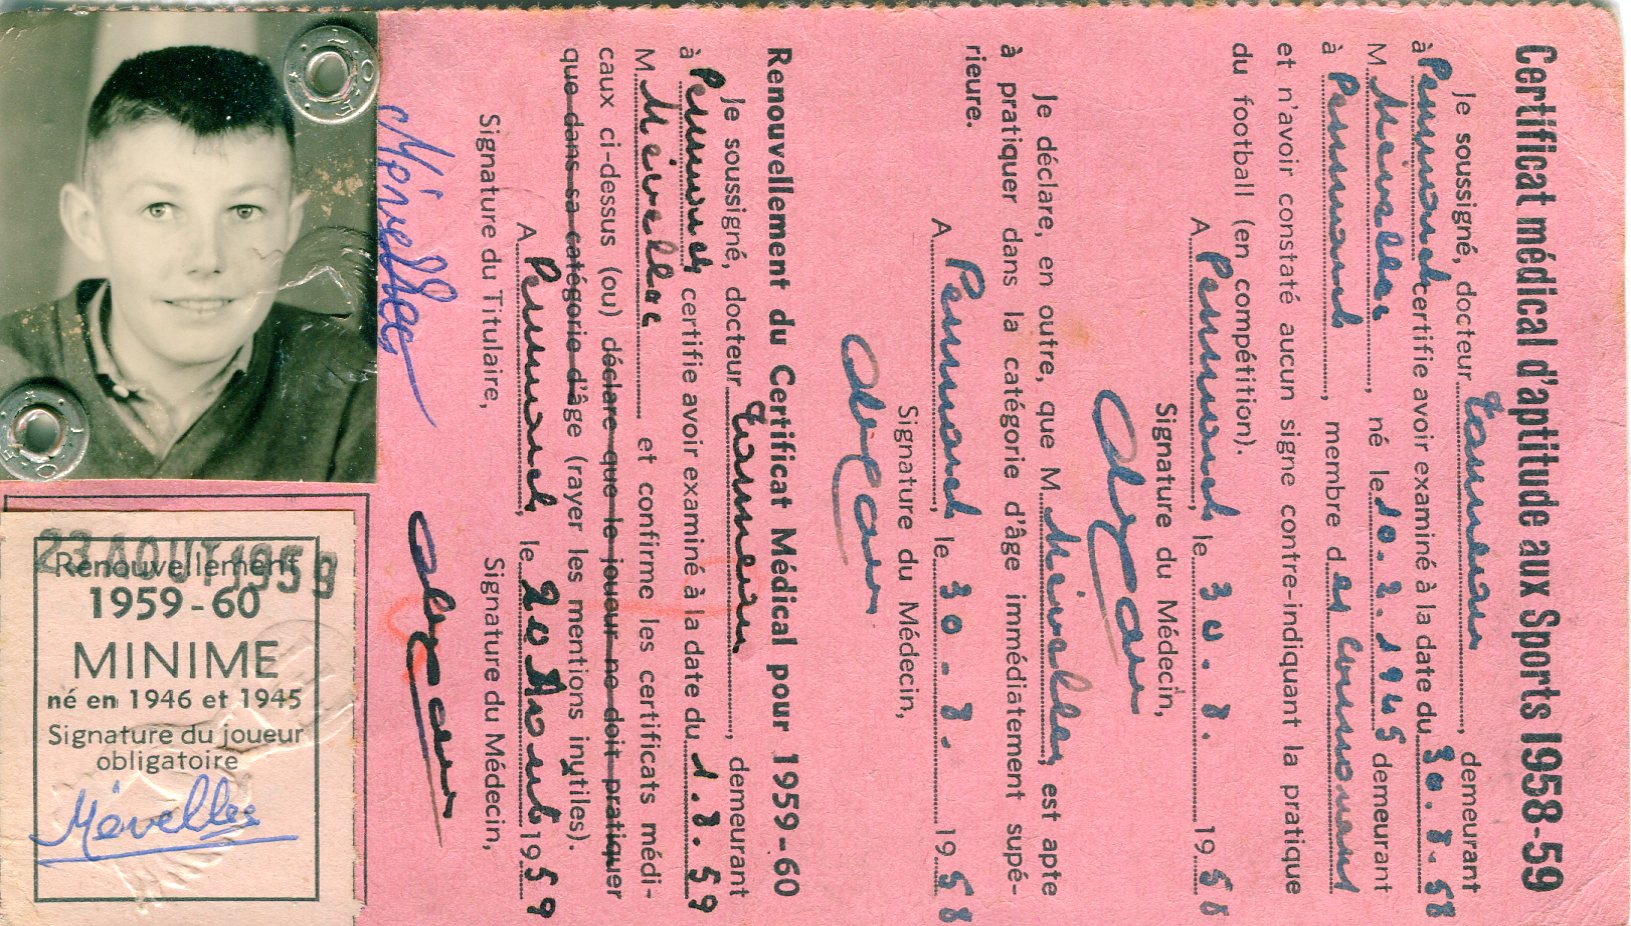 Certificat médical d'aptitude aux Sports 1958-59
Je soussigné, docteur, demeurant
à Penmarch certifie avoir examiné à la date du 30.8.58
M., né le 10.2.1945 demeurant
à Penmarch, membre des
et n'avoir constaté aucun signe contre-indiquant la pratique
du football (en compétition).
A Penmarch, le 30.8. 1958
Signature du Médecin,
Je déclare, en outre, que M., est apte
à pratiquer dans la catégorie d'âge immédiatement supé-
rieure.
A Penmarch, le 30-8- 1958
Signature du Médecin,
Renouvellement du Certificat Médical pour 1959-60
Je soussigné, docteur, demeurant
à Penmarch certifie avoir examiné à la date du 1.8.59
M. et confirme les certificats médi-
caux ci-dessus (ou) déclare que le joueur ne doit pratiquer
que dans sa catégorie d'âge (rayer les mentions inutiles).
A Penmarch, le 20 Aout 1959
Signature du Titulaire, Signature du Médecin,
23 AOUT 1959
Renouvellement
1959-60
MINIME
né en 1946 et 1945
Signature du joueur
obligatoire